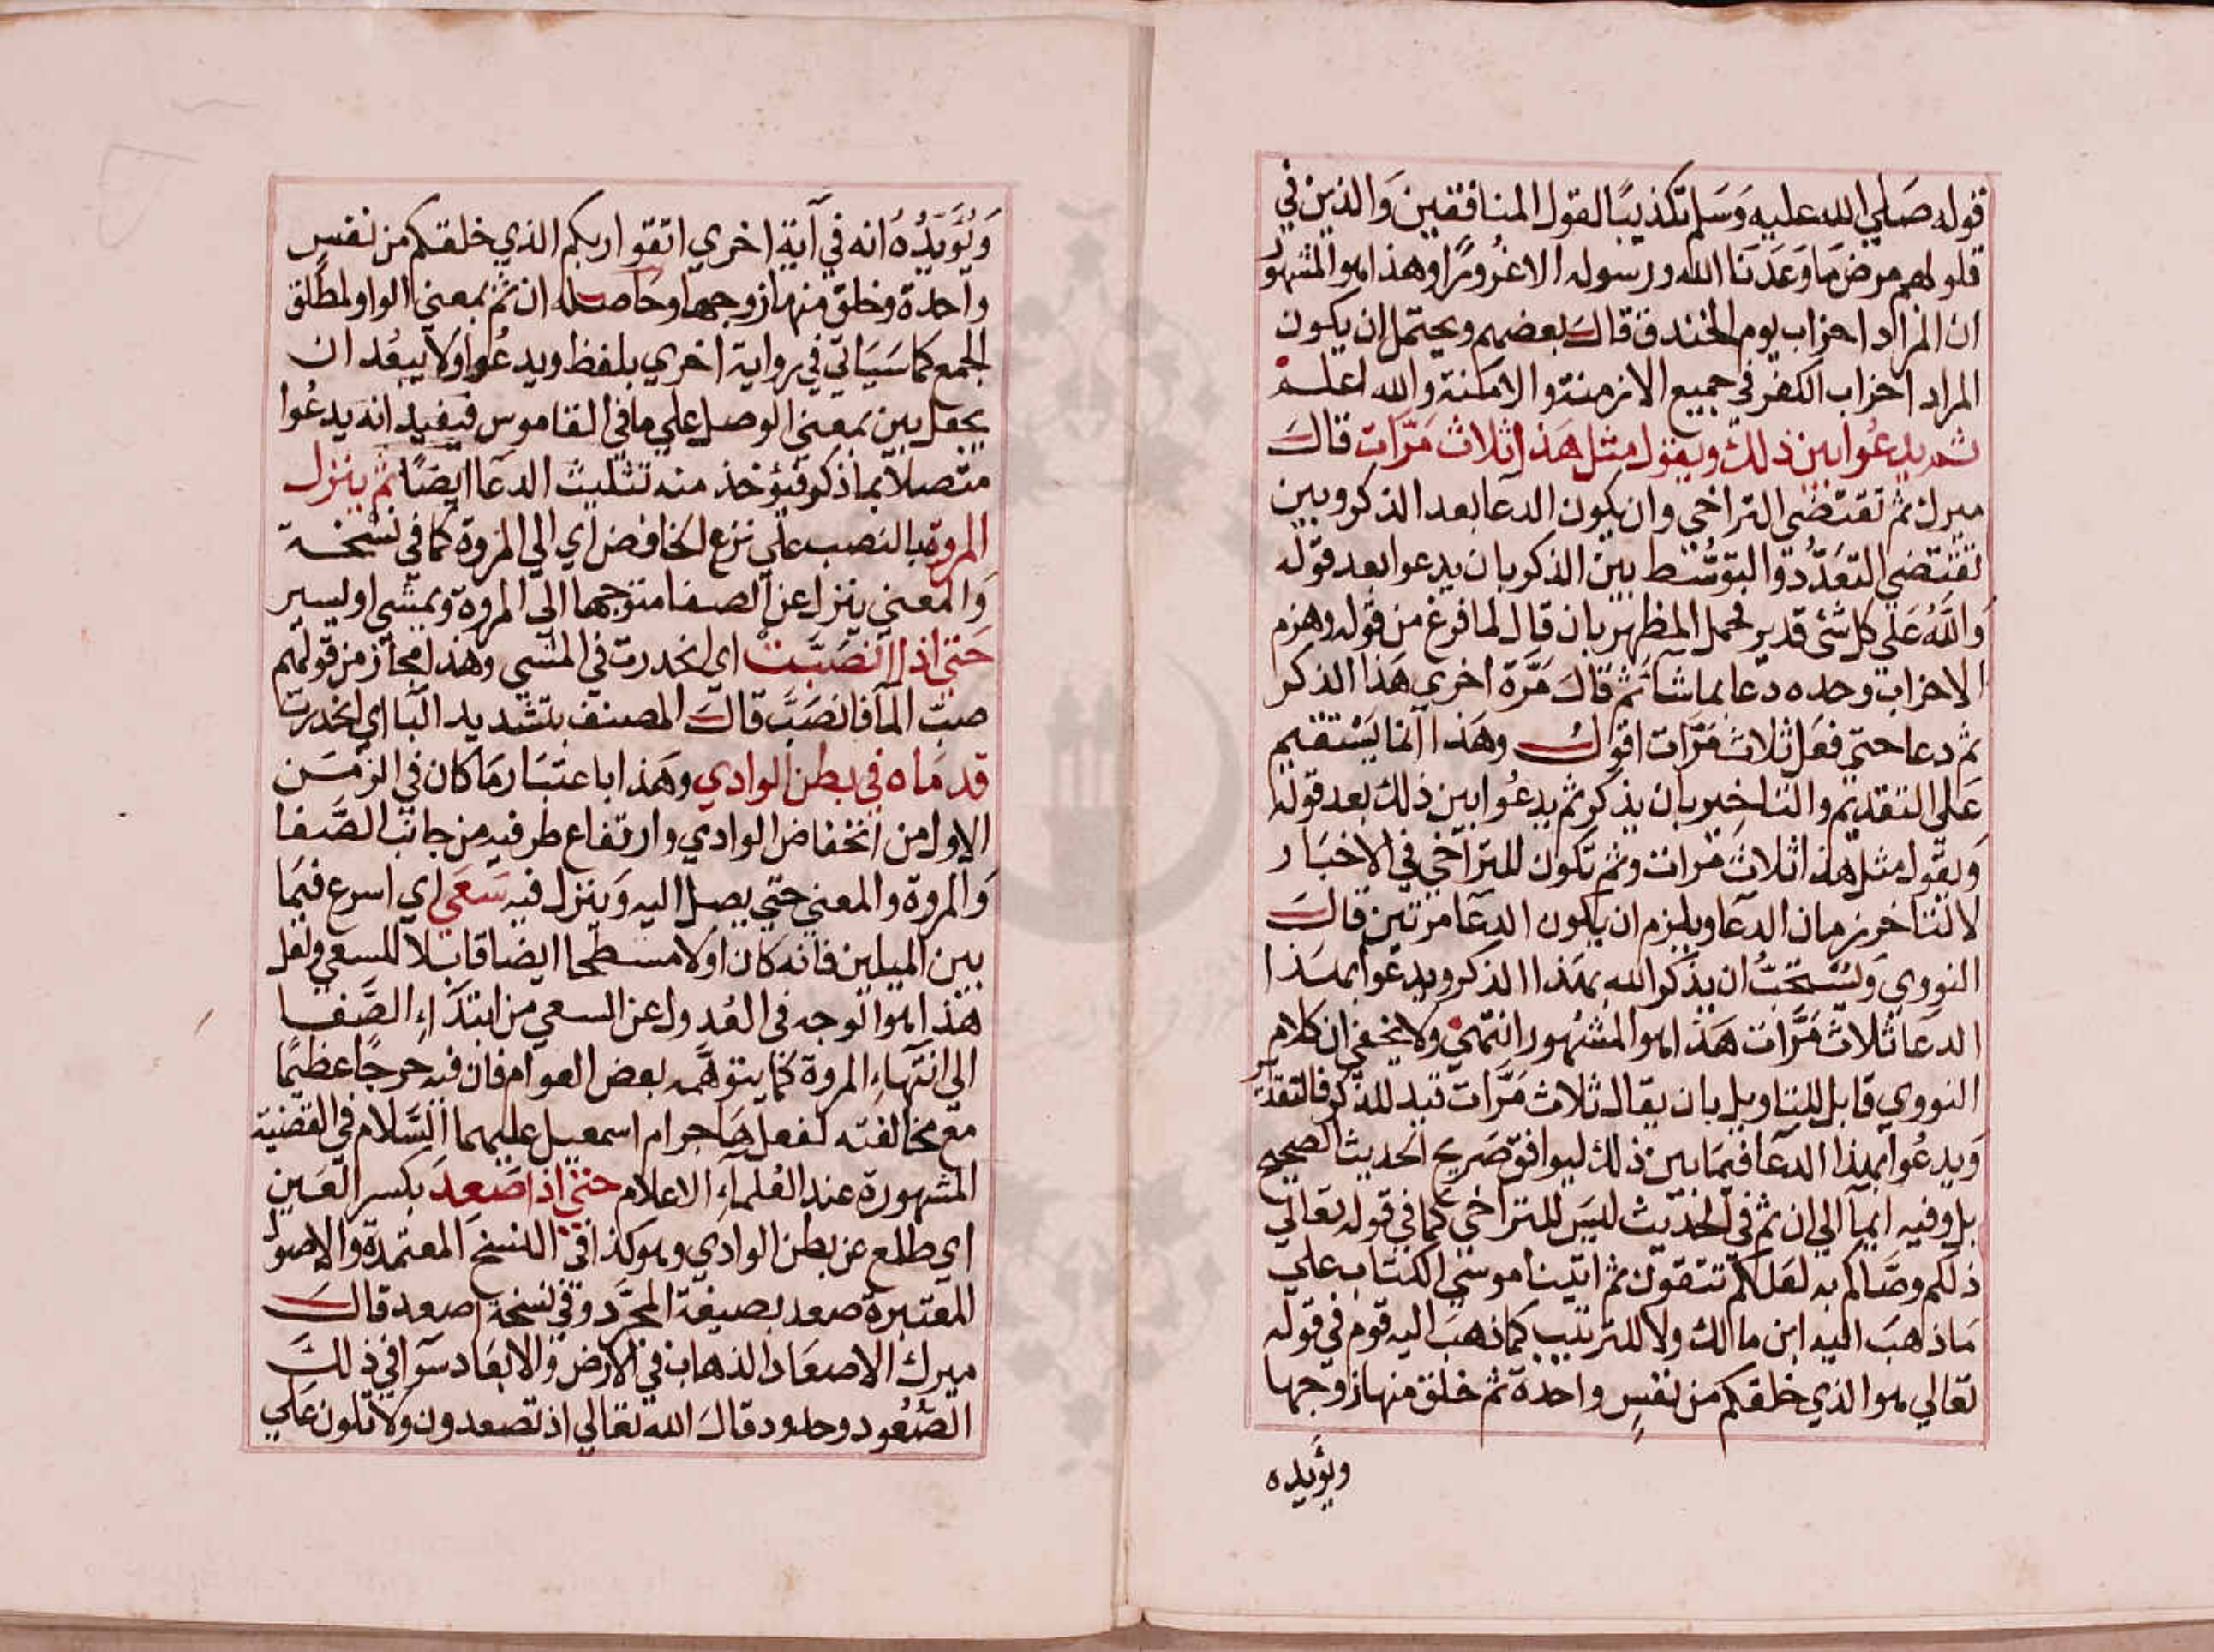 قوله صَلي الله عليه وَسَلم تكذيبًا لقول المنافقين وَالذين في
قلوبهم مرض مَا وَعَدَنَا الله ورسوله الاغُرورًا وهذا هو المشهور
ان المراد احزاب يوم الخندق قالَ بعضهم ويحتمل ان يكون
المراد احزاب الكفر في جميع الازمنة والامكنة والله اعلم
ثم يدعُوا بين ذلك ويقول مثل هَذا ثلاث مَرّات قالَ
ميرك ثم تقتضي التراخي وان يكون الدعا بعد الذكر وبين
تقتضي التعَدُّد والتوسُّط بين الذكر بان يدعوا بعد قوله
وَاللهُ عَلي كل شئ قدير فحمل المظهر بان قال لما فرغ من قوله وهزم
الاحزاب وحده دعا بما شا ثم قالَ مَرّة اخري هَذا الذكر
ثم دعا حتي فعَل ثلاث مَرّات اقول وهَذا انما يَسْتقيم
عَلي التقديم والتاخير بان يذكر ثم يدعُوا بين ذلك بعد قوله
وَيقول مثل هذا ثلاث مَرات وثم تكون للتراخي في الاخبَار
لا لتاخر زمان الدعا ويلزم ان يكون الدعا مرتين قالَ
النووي وَيُسْتحَبُّ ان يذكر الله بهَذا الذكر ويدعوا بهَذا
الدعَا ثلاث مَرَّات هَذا هو المشهور انتهي ولا يخفي ان كلام
النووي قابل للتاويل بان يقال ثلاث مَرَّات قيد للذكر فالتقدير
وَيدعُوا بهذا الدعَا فيمَا بين ذلك ليوافق صَريح الحديث الصحيح
بل وفيه ايمآ الي ان ثم في الحَديث ليسَ للتراخي كما في قوله تعَالي
ذلكم وصَّاكم به لعَلكم تتقون ثم اتينا موسَي الكتاب علي
مَا ذهبَ اليه ابن مالك ولا للترتيب كما ذهبَ اليه قوم في قوله
تعَالي هو الذي خلقكم من نفسٍ واحدة ثم خلق منها زوجها
ويؤيده
وَيُؤَيّدُهُ انه في آية اخري اتقوا ربكم الذي خلقكم من نفسٍ
واحدة وخلق منها زوجها وحَاصله ان ثم بمعني الواو لمطلق
الجمع كما سَيَاتي في رواية اخري بلفظ ويدعُوا ولا يبعُد ان
يجعل بين بمعني الوصل علي ما في القاموس فيفيد انه يدعُوا
متصلا بما ذكر فيؤخذ منه تثليث الدعَا ايضًا ثم ينزل
المروة بالنصب علي نزع الخافض اي الي المروة كما في نسخة
وَالمعني ينزل عن الصفا متوجها الي المروة ويمشي او يسير
حَتي اذا انصَبَّتْ اي انحدرت في المشي وهذا مجاز من قولهم
صبّ المآ فانصَبَّ قالَ المصنف بتشديد البا اي انحدرت
قدمَاه في بطن الوادي وهَذا باعتبَار مَا كان في الزمَن
الاول من انخفاض الوادي وارتفاع طرفيه من جانب الصَّفا
وَالمروة والمعني حتي يصل اليه وَينزل فيه سَعَي اي اسرع فيمَا
بين الميلين فانه كان اولا مسطحا ايضا قابلا للسعي ولعل
هذا هو الوجه في العُدول عن السعي من ابتدَاءِ الصَّفا
الي انتهَاءِ المروة كما يتوهَّمه بعض العوام فان فيه حرجًا عظيمًا
مع مخالفته لفعل هَاجر ام اسمعيل عليهما السَّلام في القضية
المشهورة عند العُلمآءِ الاعلام حتي اذا صَعِدَ بكسر العَين
اي طلع عن بطن الوادي وهو كذا في النسخ المعتمدة والاصول
المعَتبرة صعد بصيغة المجرَّد وفي نسخة اصعد قالَ
ميرك الاصعَاد الذهاب في الارض وَالابعَاد سوآ في ذلكَ
الصُّعُود وحدود قالَ الله تعَالي اذ تصعدون ولا تلون عَلي